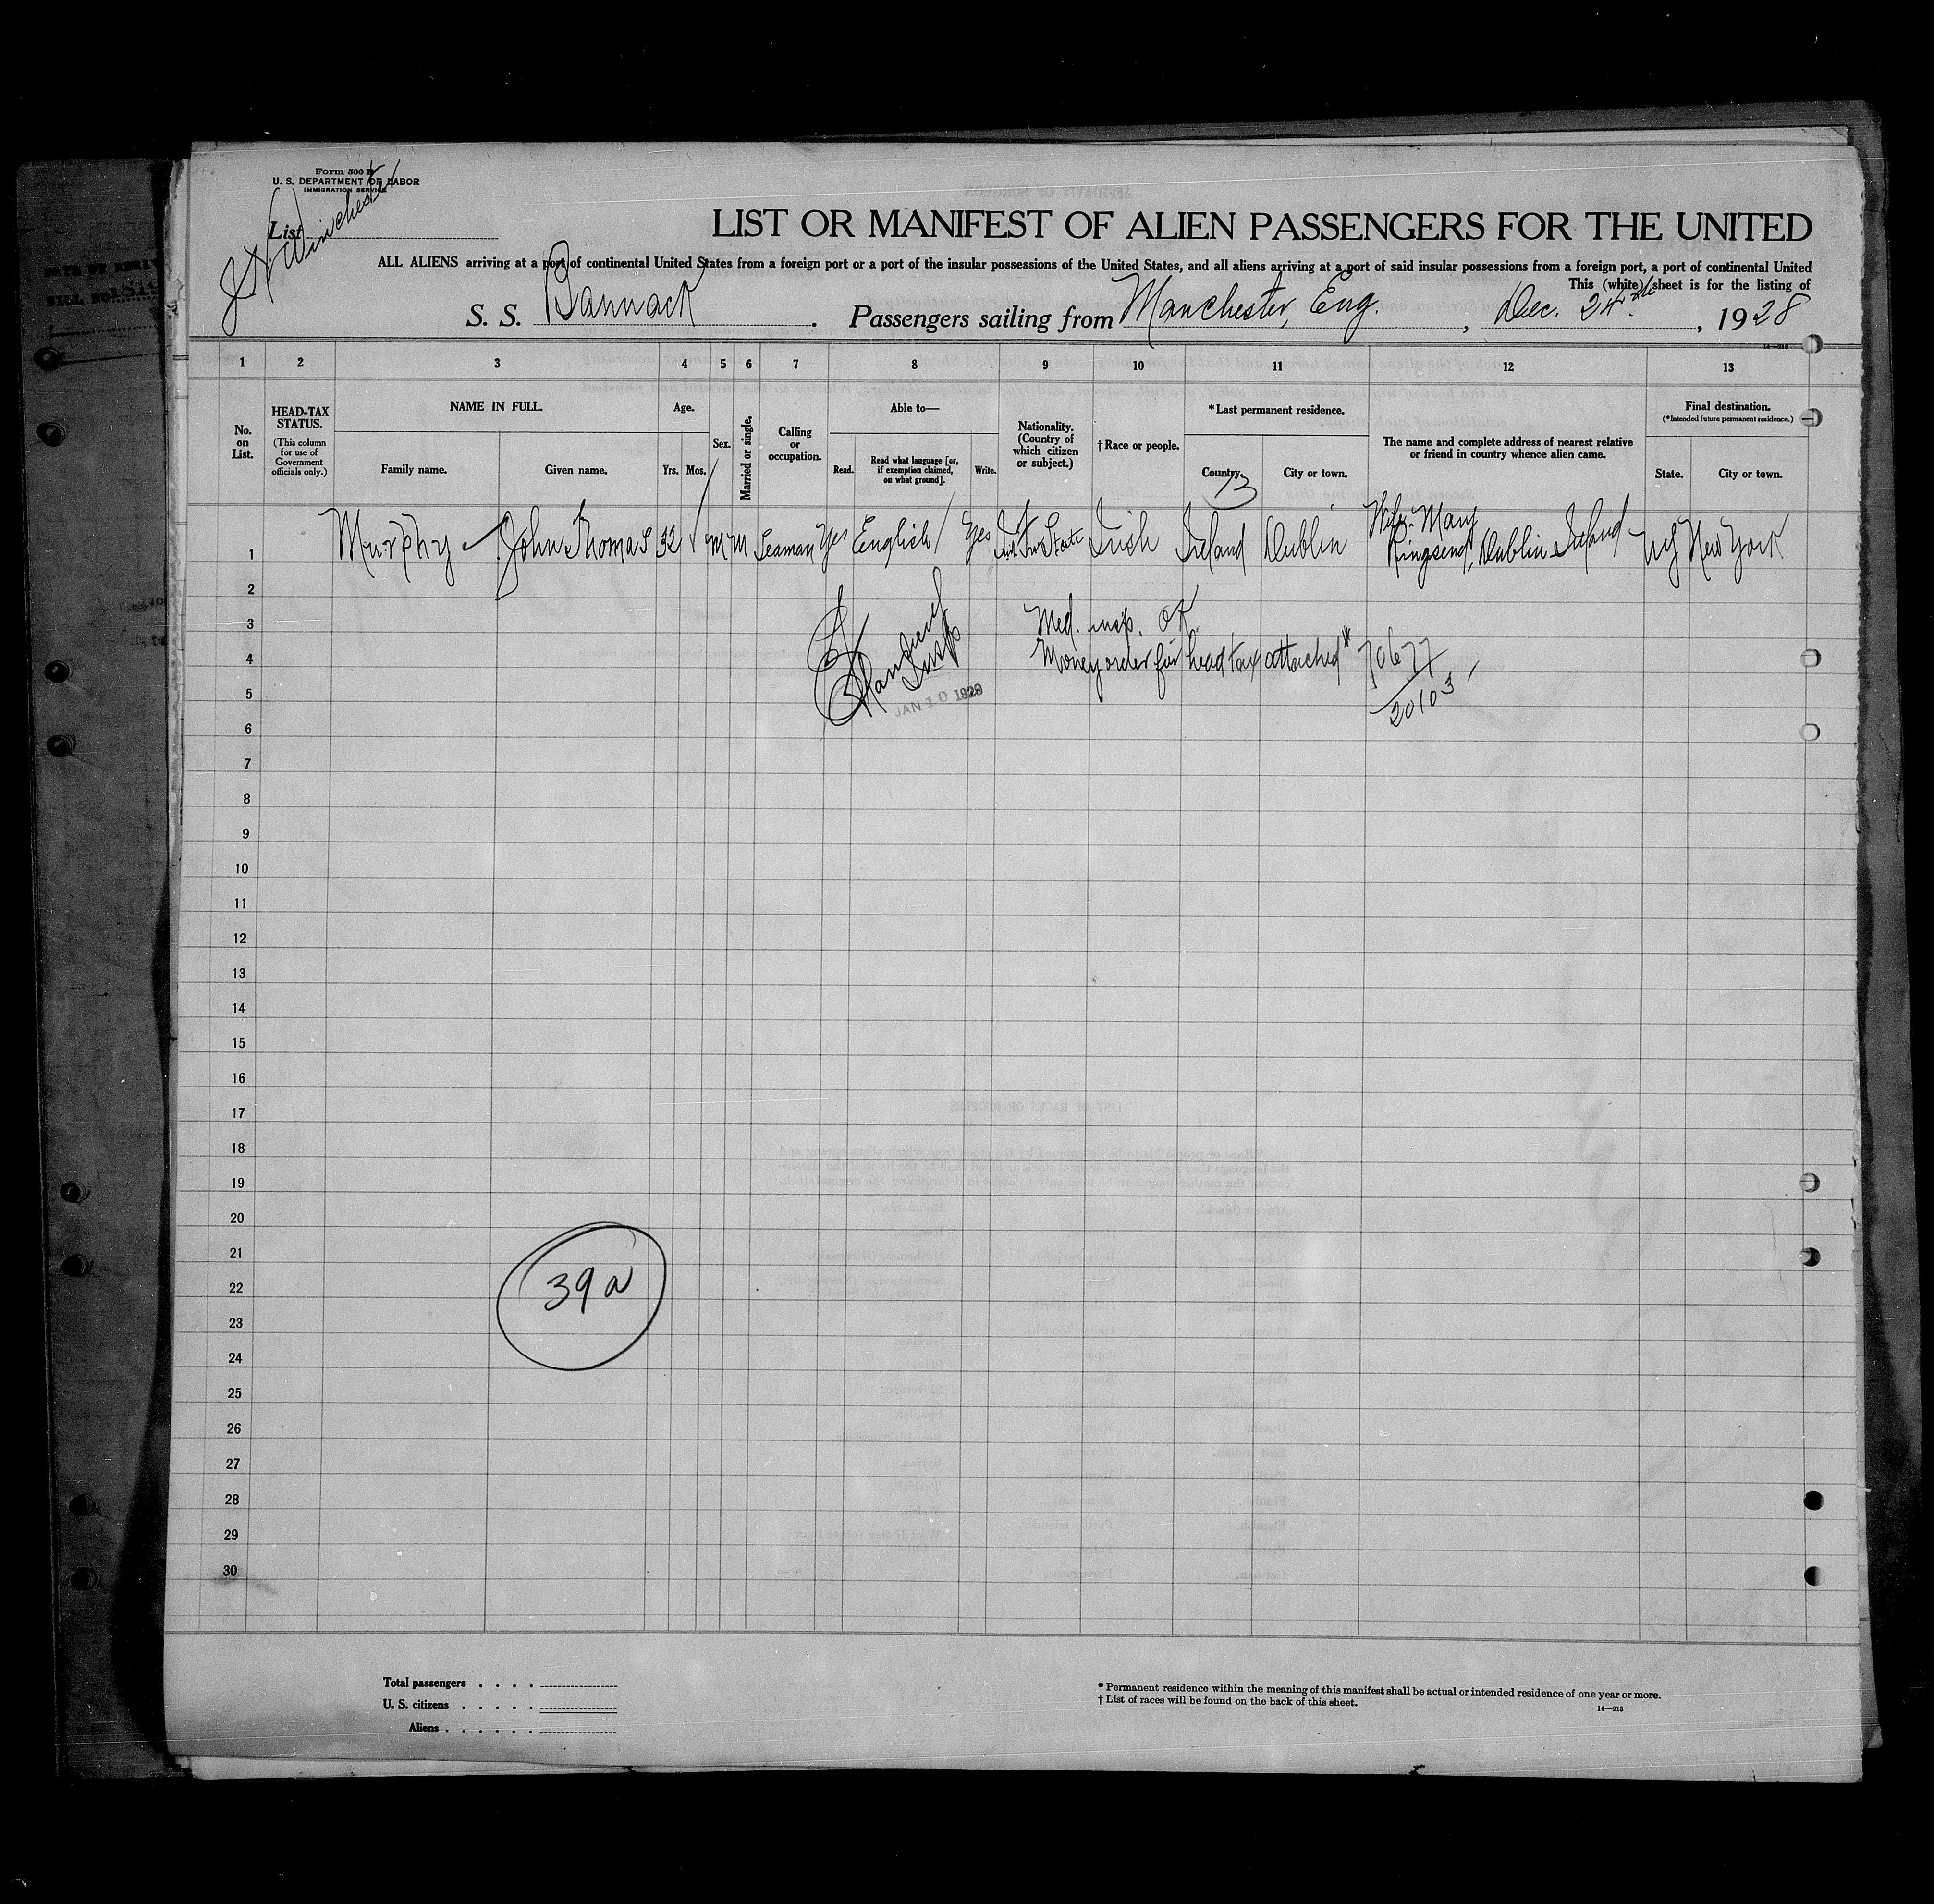 Form 500 B
U. S. DEPARTMENT OF LABOR
IMMIGRATION SERVICE
List
J H Winchester
LIST OR MANIFEST OF ALIEN PASSENGERS FOR THE UNITED
ALL ALIENS arriving at a port of continental United States from a foreign port or a port of the insular possessions of the United States, and all aliens arriving at a port of said insular possessions from a foreign port, a port of continental United
This (white) sheet is for the listing of
S. S. Bannack. Passengers sailing from Manchester, Eng., Dec. 24th, 1928
14—213
1 2 3 4 5 6 7 8 9 10 11 12 13
No. on List.
HEAD-TAX STATUS.
(This column for use of Government officials only.)
NAME IN FULL.
Family name. Given name.
Age.
Yrs. Mos.
Sex.
Married or single.
Calling or occupation.
Able to—
Read. Read what language [or, if exemption claimed, on what ground]. Write.
Nationality. (Country of which citizen or subject.)
†Race or people.
*Last permanent residence.
Country. City or town.
The name and complete address of nearest relative or friend in country whence alien came.
Final destination.
(*Intended future permanent residence.)
State. City or town.
13
1 Murphy John Thomas 32 M M Seaman Yes English Yes Irish Free State Irish Ireland Dublin Wife: Mary Ringsend, Dublin Ireland NY New York
2
3 Med. insp. OK
4 Money order for head tax attached * 70677
Insp
5 JAN 10 1929 20103
6
7
8
9
10
11
12
13
14
15
16
17
18
19
20
21
22
39a
23
24
25
26
27
28
29
30
Total passengers . . . .
U. S. citizens . . . . .
Aliens . . . . . .
* Permanent residence within the meaning of this manifest shall be actual or intended residence of one year or more.
† List of races will be found on the back of this sheet.
14—213